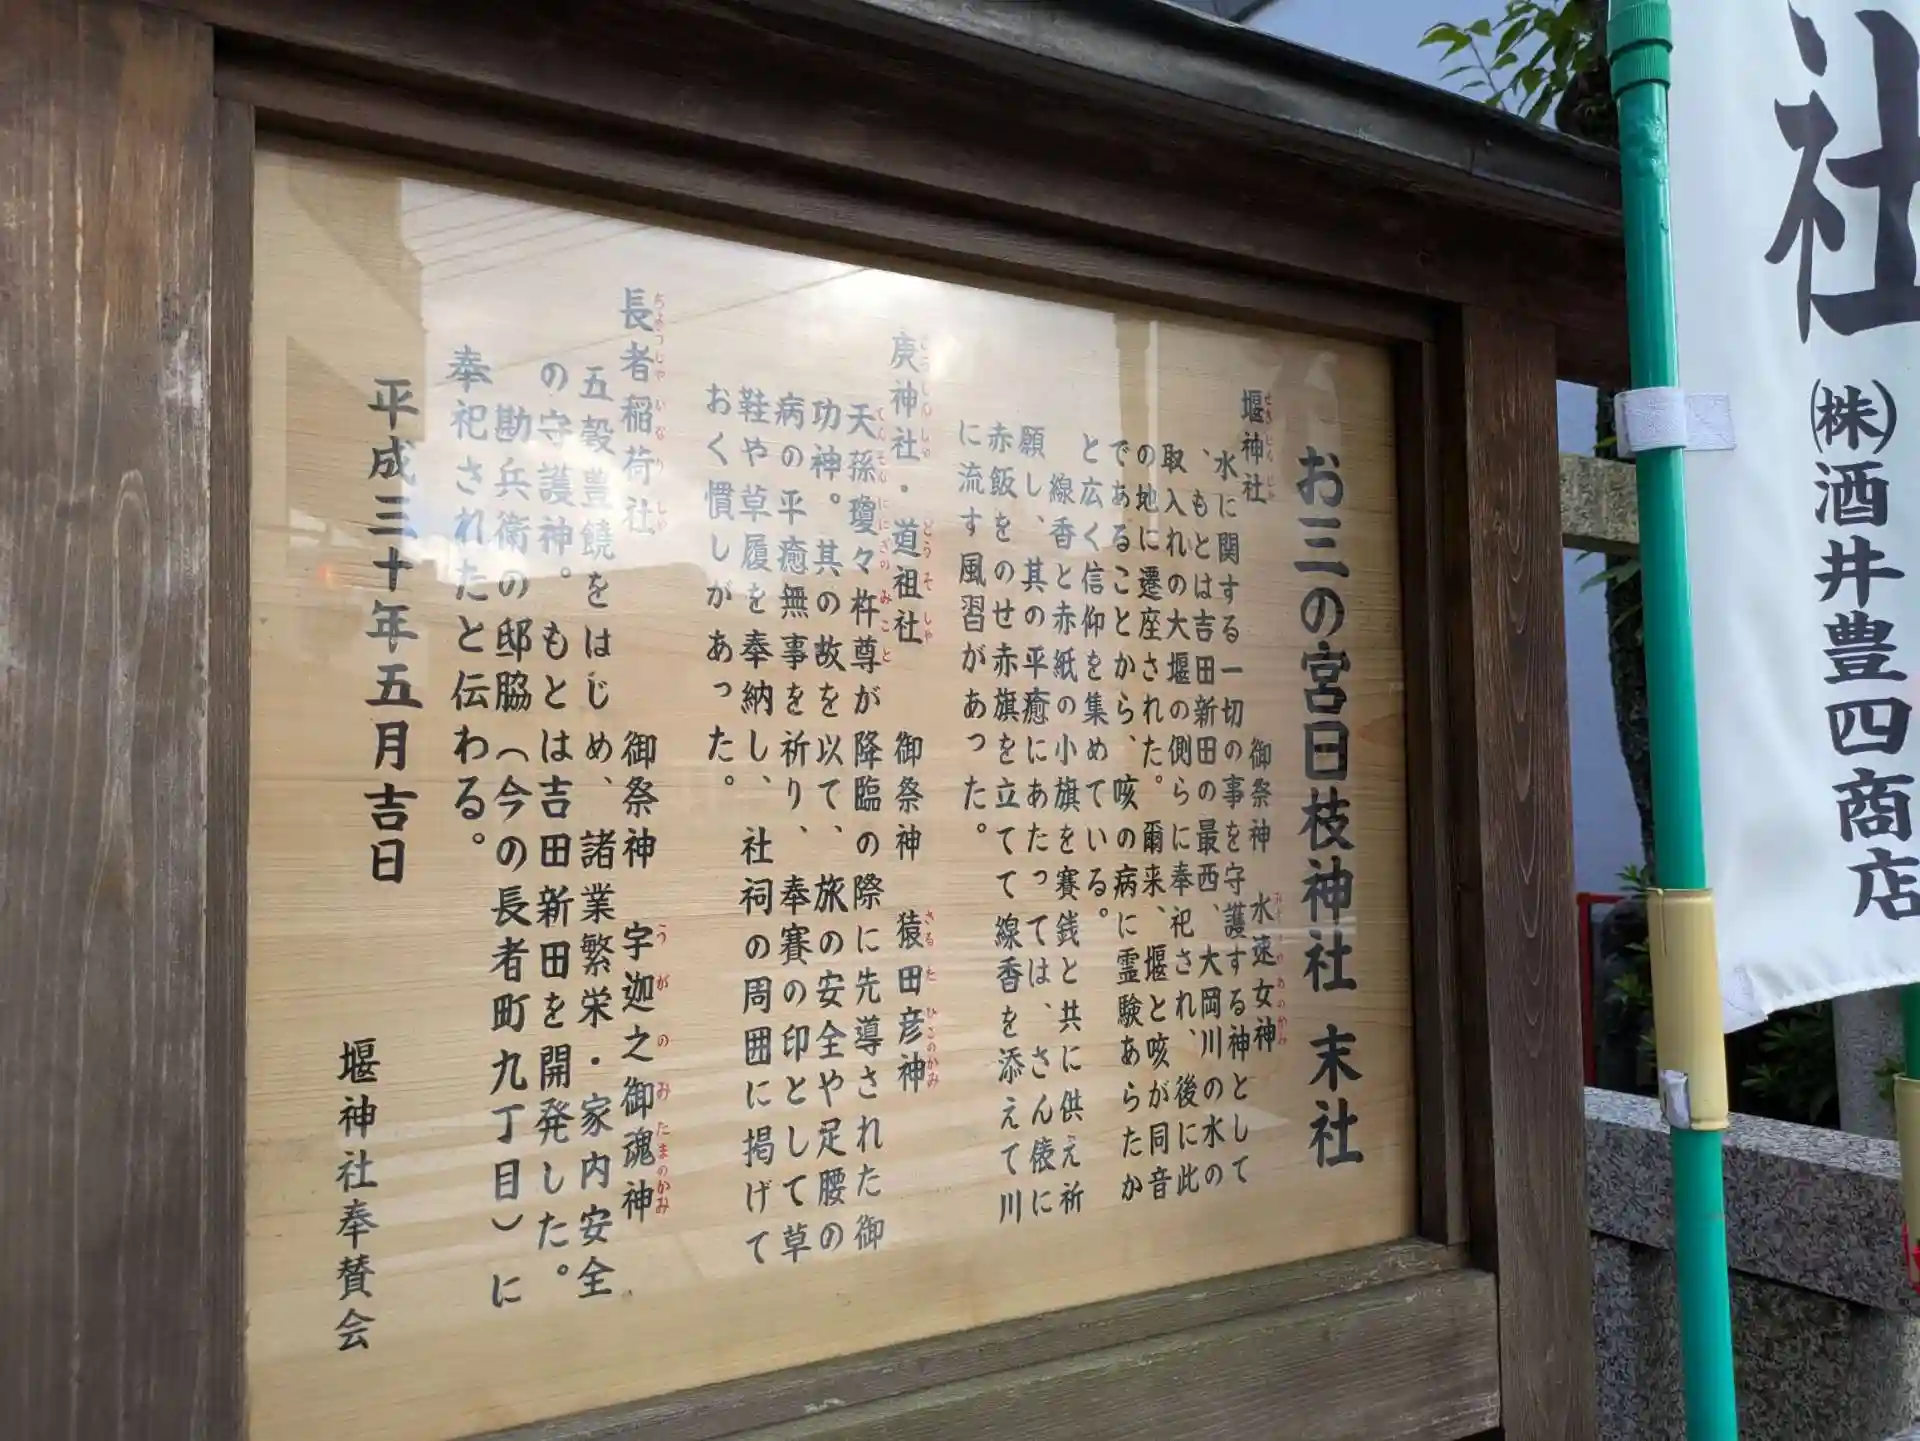 お三の宮日枝神社 末社
堰神社 御祭神 水速女神
水に関する一切の事を守護する神として
、もとは吉田新田の最西、大岡川の水の
取入れの大堰の側らに奉祀され、後に此
の地に遷座された。爾来、堰と咳が同音
であることから、咳の病に霊験あらたか
と広く信仰を集めている。
線香と赤紙の小旗を賽銭と共に供え祈
願し、其の平癒にあたっては、さん俵に
赤飯をのせ赤旗を立てて線香を添えて川
に流す風習があった。
庚神社・道祖社 御祭神 猿田彦神
天孫瓊々杵尊が降臨の際に先導された御
功神。其の故を以て、旅の安全や足腰の
病の平癒無事を祈り、奉賽の印として草
鞋や草履を奉納し、社祠の周囲に掲げて
おく慣しがあった。
長者稲荷社 御祭神 宇迦之御魂神
五穀豊饒をはじめ、諸業繁栄・家内安全
の守護神。もとは吉田新田を開発した。
勘兵衛の邸脇（今の長者町九丁目）に
奉祀されたと伝わる。
平成三十年五月吉日
堰神社奉賛会
社
㈱酒井豊四商店